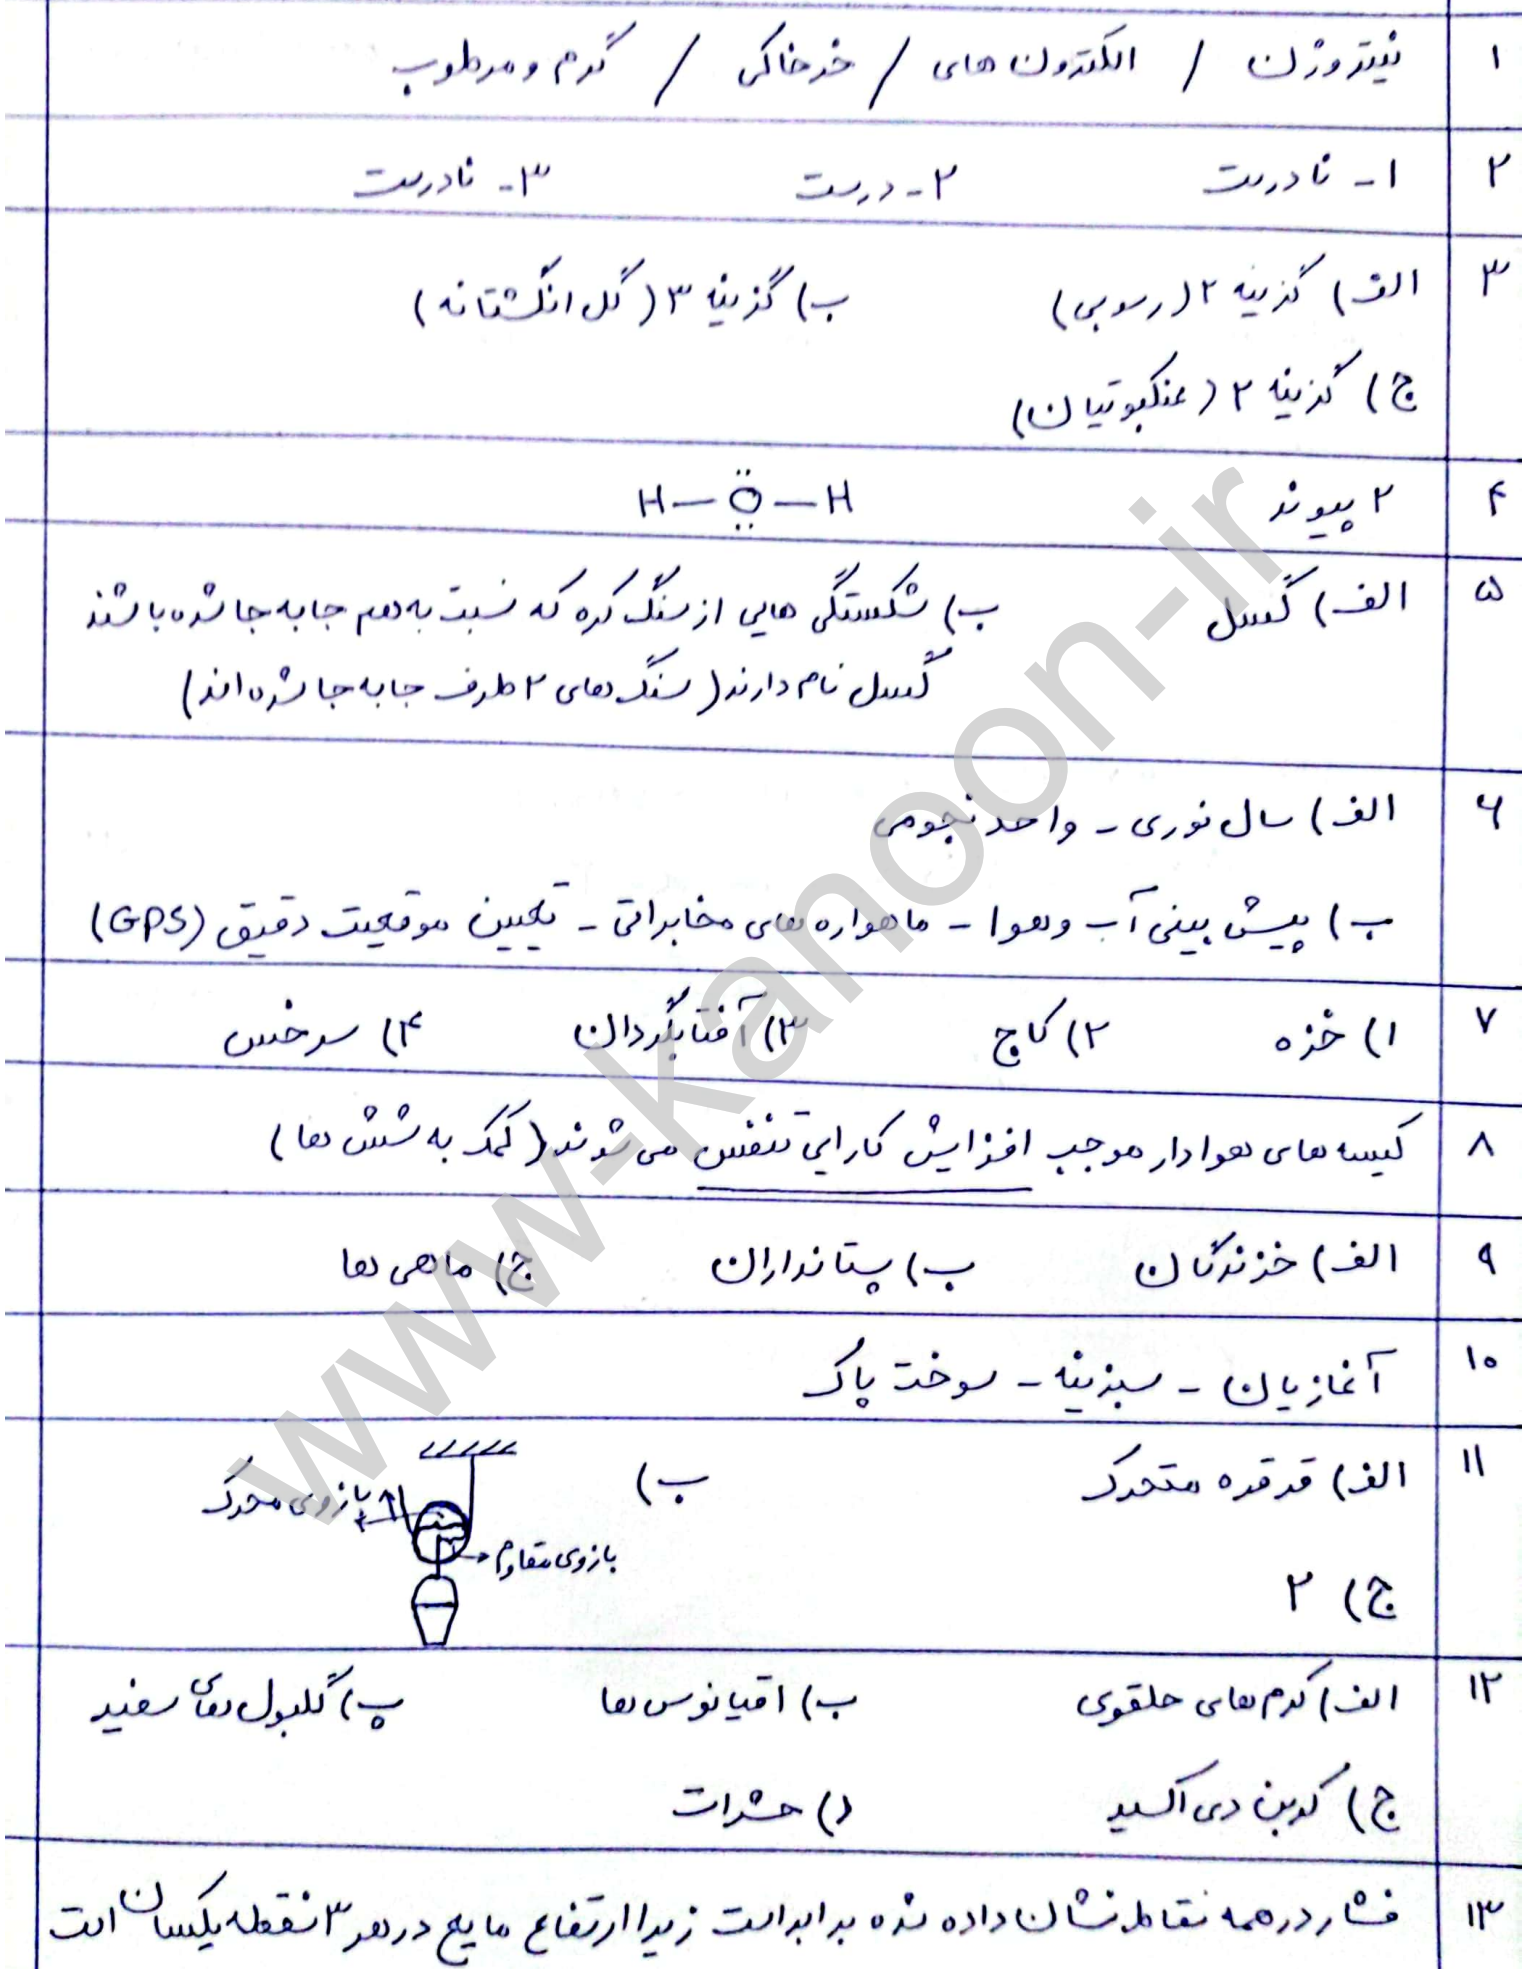 ۱ نیتروژن / الکترون های / خرخاکی / گرم و مرطوب
۲ ۱- نادرست ۲- درست ۳- نادرست
۳ الف) گزینه ۲ (رسوبی) ب) گزینه ۳ (گل انگشتانه)
ج) گزینه ۲ (عنکبوتیان)
۴ ۲ پیوند H–Ö–H
۵ الف) گسل ب) شکستگی هایی از سنگ کره که نسبت به هم جا به جا شده باشند
گسل نام دارند (سنگ های ۲ طرف جا به جا شده اند)
۶ الف) سال نوری - واحد نجومی
ب) پیش بینی آب و هوا - ماهواره های مخابراتی - تعیین موقعیت دقیق (GPS)
۷ ۱) خزه ۲) کاج ۳) آفتابگردان ۴) سرخس
۸ کیسه های هوادار موجب افزایش کارایی تنفس می شوند (کمک به شش ها)
۹ الف) خزندگان ب) پستانداران ج) ماهی ها
۱۰ آغازیان - سبزینه - سوخت پاک
۱۱ الف) قرقره متحرک ب)
بازوی محرک
بازوی مقاوم
ج) ۲
۱۲ الف) کرم های حلقوی ب) اقیانوس ها پ) گلبول های سفید
ج) کربن دی اکسید د) حشرات
۱۳ فشار در همه نقاط نشان داده شده برابر است زیرا ارتفاع مایع در هر ۳ نقطه یکسان است
www-kanoon-ir